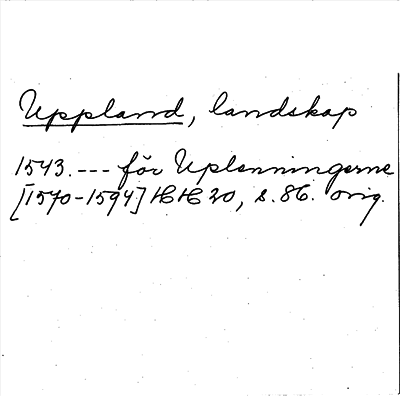 Uppland, landskap
1543. --- för Uplenningerne
[1570-1594] HH 20, s. 86. orig.